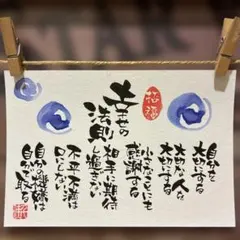 幸せの
法則
自分を
大切にする
大切な人を
大切にする
小さなことにも
感謝する
相手に期待
し過ぎない
不平不満は
口にしない
自分の機嫌は
自分で取る